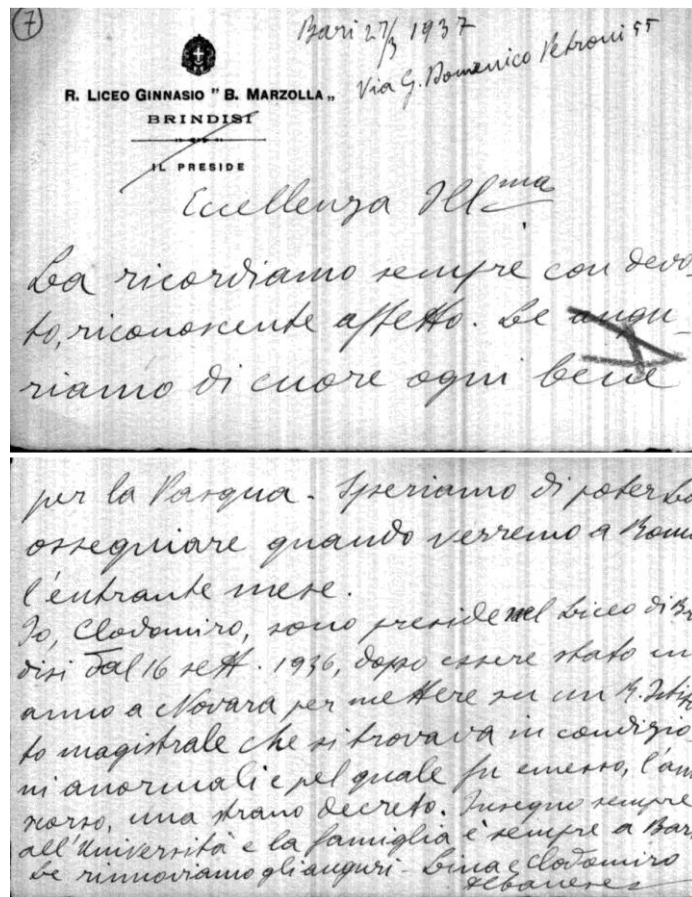 7
Bari 27/3 1937
Via G. Domenico Petroni 55
R. LICEO GINNASIO " B. MARZOLLA „
BRINDISI
IL PRESIDE
Eccellenza Ill ma
La ricordiamo sempre con devo
to, riconoscente affetto. Le augu-
riamo di cuore ogni bene
per la Pasqua - Speriamo di poterLa
ossequiare quando verremo a Roma
l'entrante mese.
Io, Clodomiro, sono preside nel Liceo di Br
disi dal 16 sett. 1936, dopo essere stato un
anno a Novara per mettere su un R. Istitu
to magistrale che si trovava in condizio
ni anormali e pel quale fu emesso, l'an
scorso, uno strano decreto. Insegno sempre
all'Università e la famiglia è sempre a Bari
Le rinnoviamo gli auguri - Lina e Clodomiro
Albanese